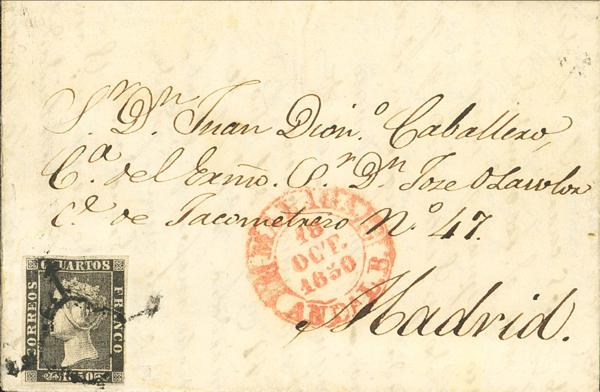 S.r D.n Juan Dion.o Caballero,
C.a del Exmo. S.r D.n Jose O Lawlor
C.e de Jacometrezo N.o 47.
Madrid.
18
OCT.
1850
ANDAL. B.
6 CUARTOS
CORREOS
FRANCO
1850